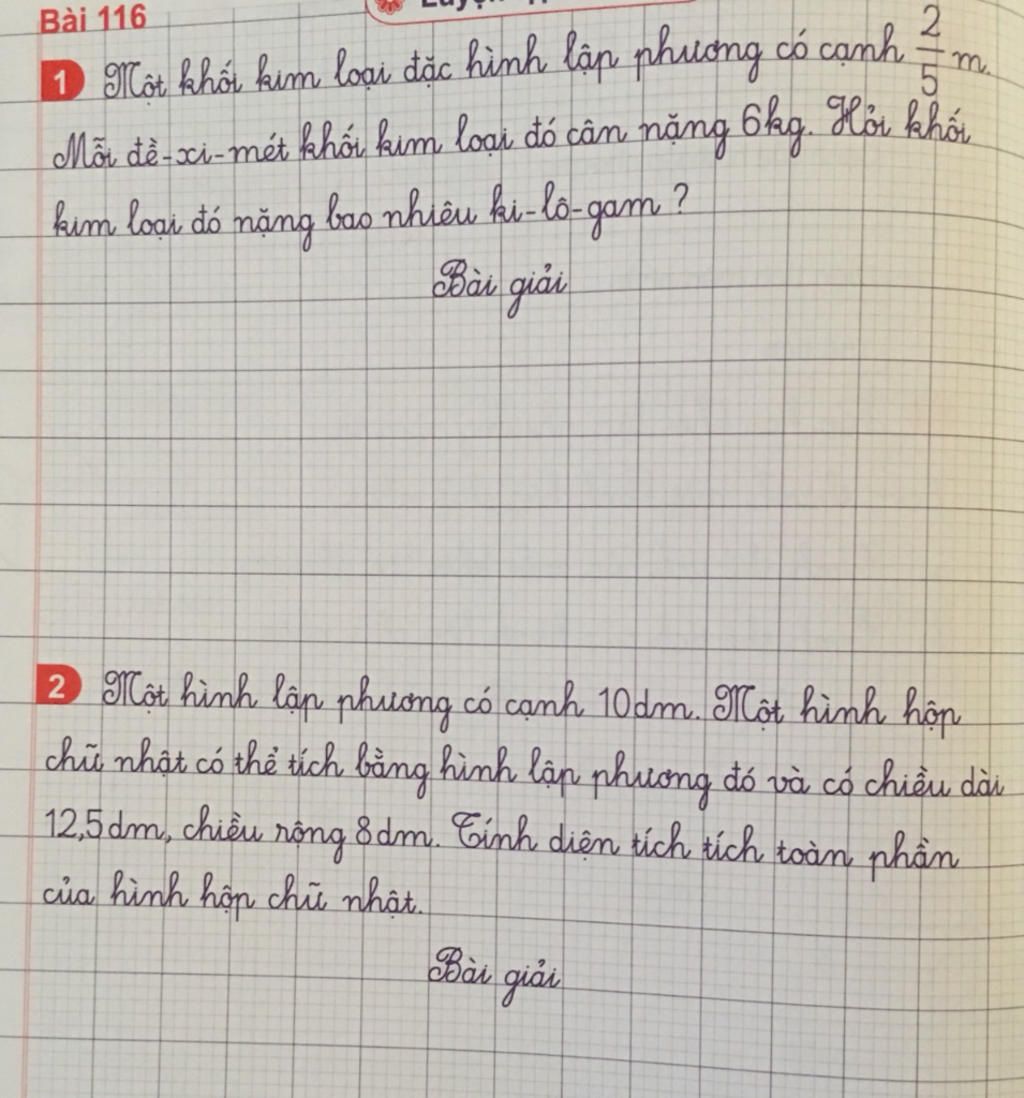 Bài 116
1 Một khối kim loại đặc hình lập phương có cạnh 2/5 m.
Mỗi đề-xi-mét khối kim loại đó cân nặng 6kg. Hỏi khối
kim loại đó nặng bao nhiêu ki-lô-gam?
Bài giải
2 Một hình lập phương có cạnh 10dm. Một hình hộp
chữ nhật có thể tích bằng hình lập phương đó và có chiều dài
12,5dm, chiều rộng 8dm. Tính diện tích tích toàn phần
của hình hộp chữ nhật.
Bài giải